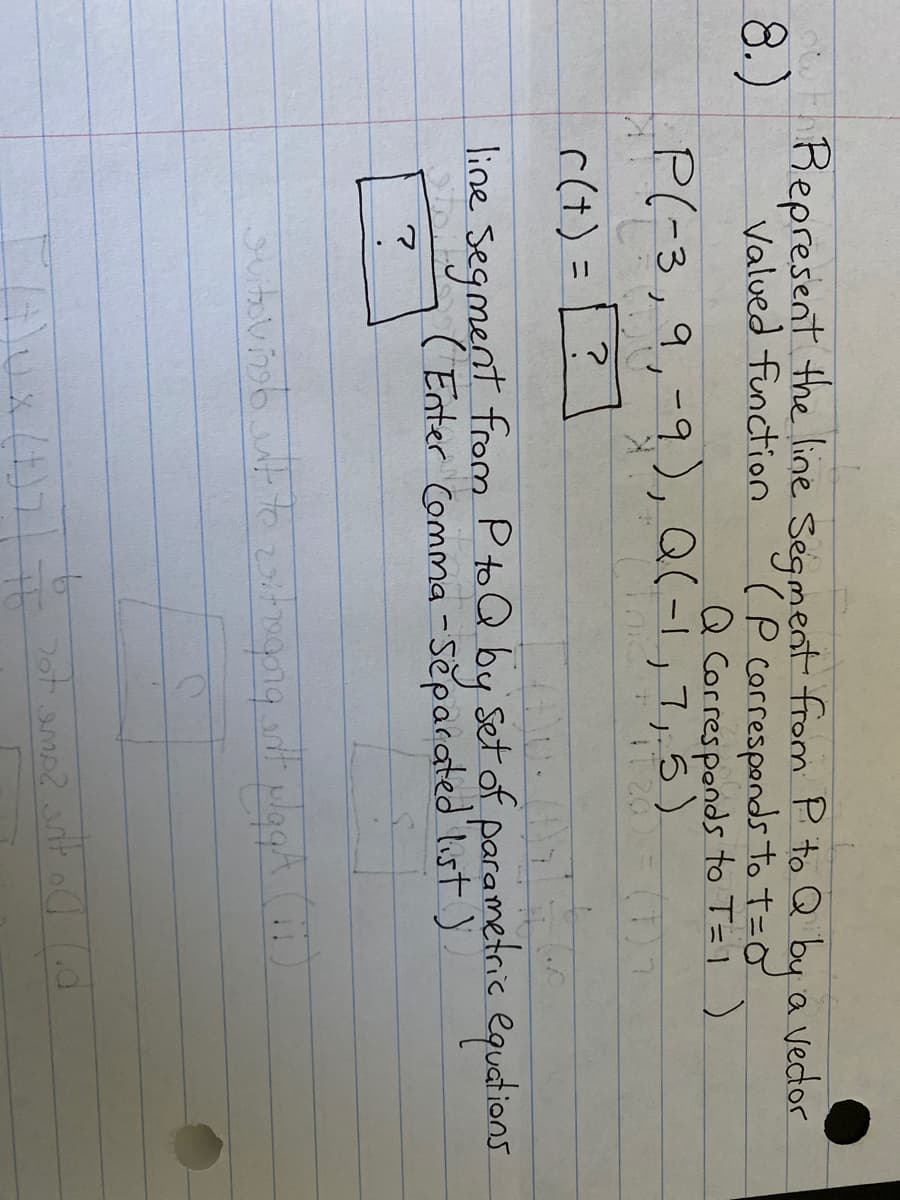 8.) Represent the line segment from P to Q by a vector
valued function (P corresponds to t=0
Q corresponds to T=1 )
P(-3, 9, -9), Q(-1, 7, 5)
r(t) = [?]
line segment from P to Q by set of parametric equations
(Enter Comma-separated list)
?